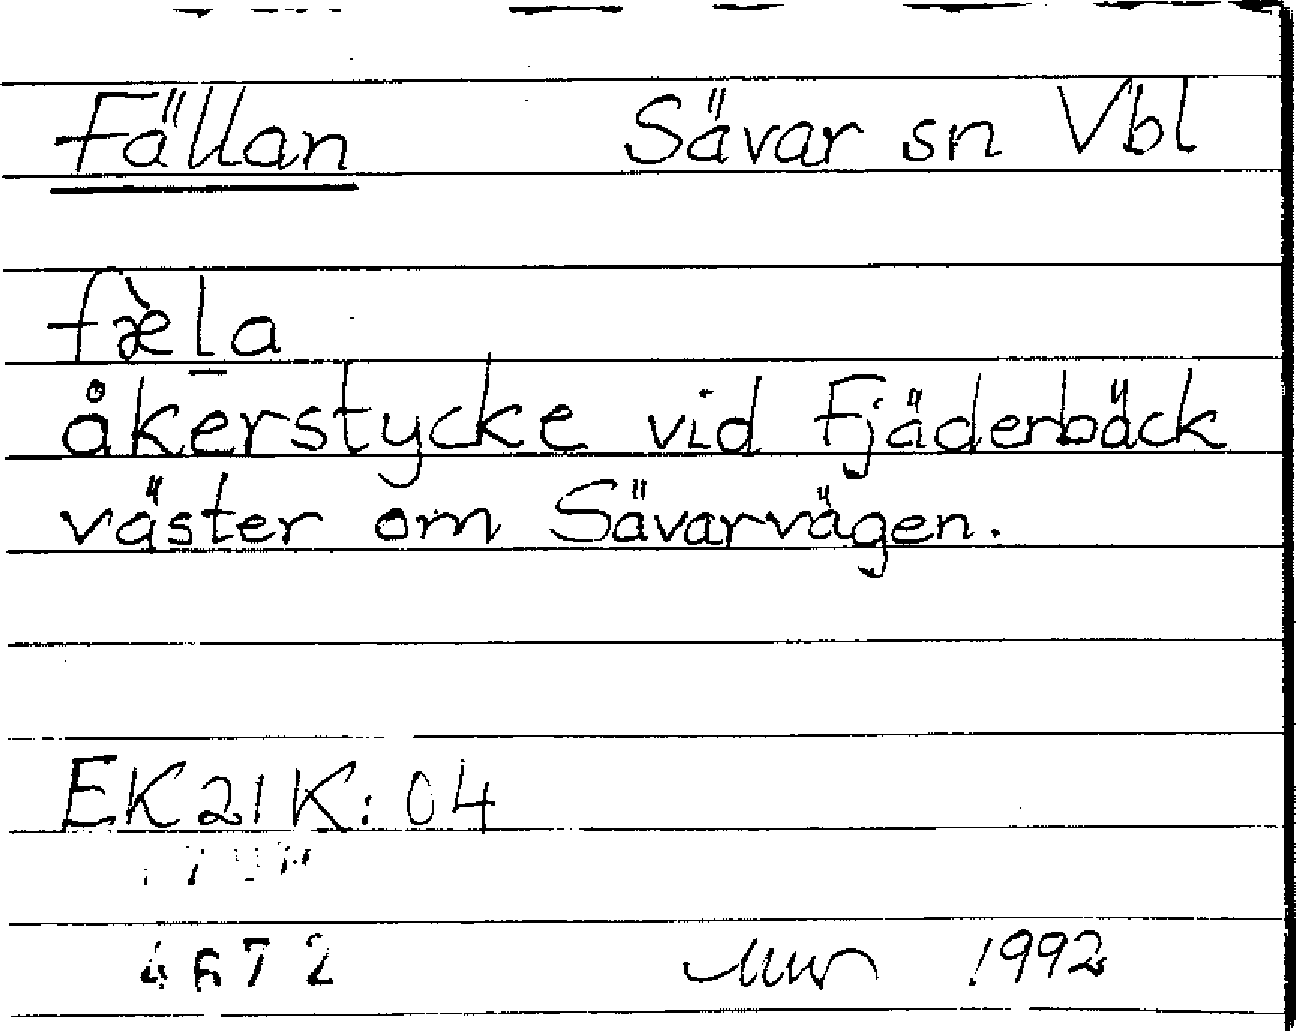 Fällan Sävar sn Vbl
fæ̀l̲a
åkerstycke vid Fjäderbäck
väster om Sävarvägen.
EK21K:04
4672
1992